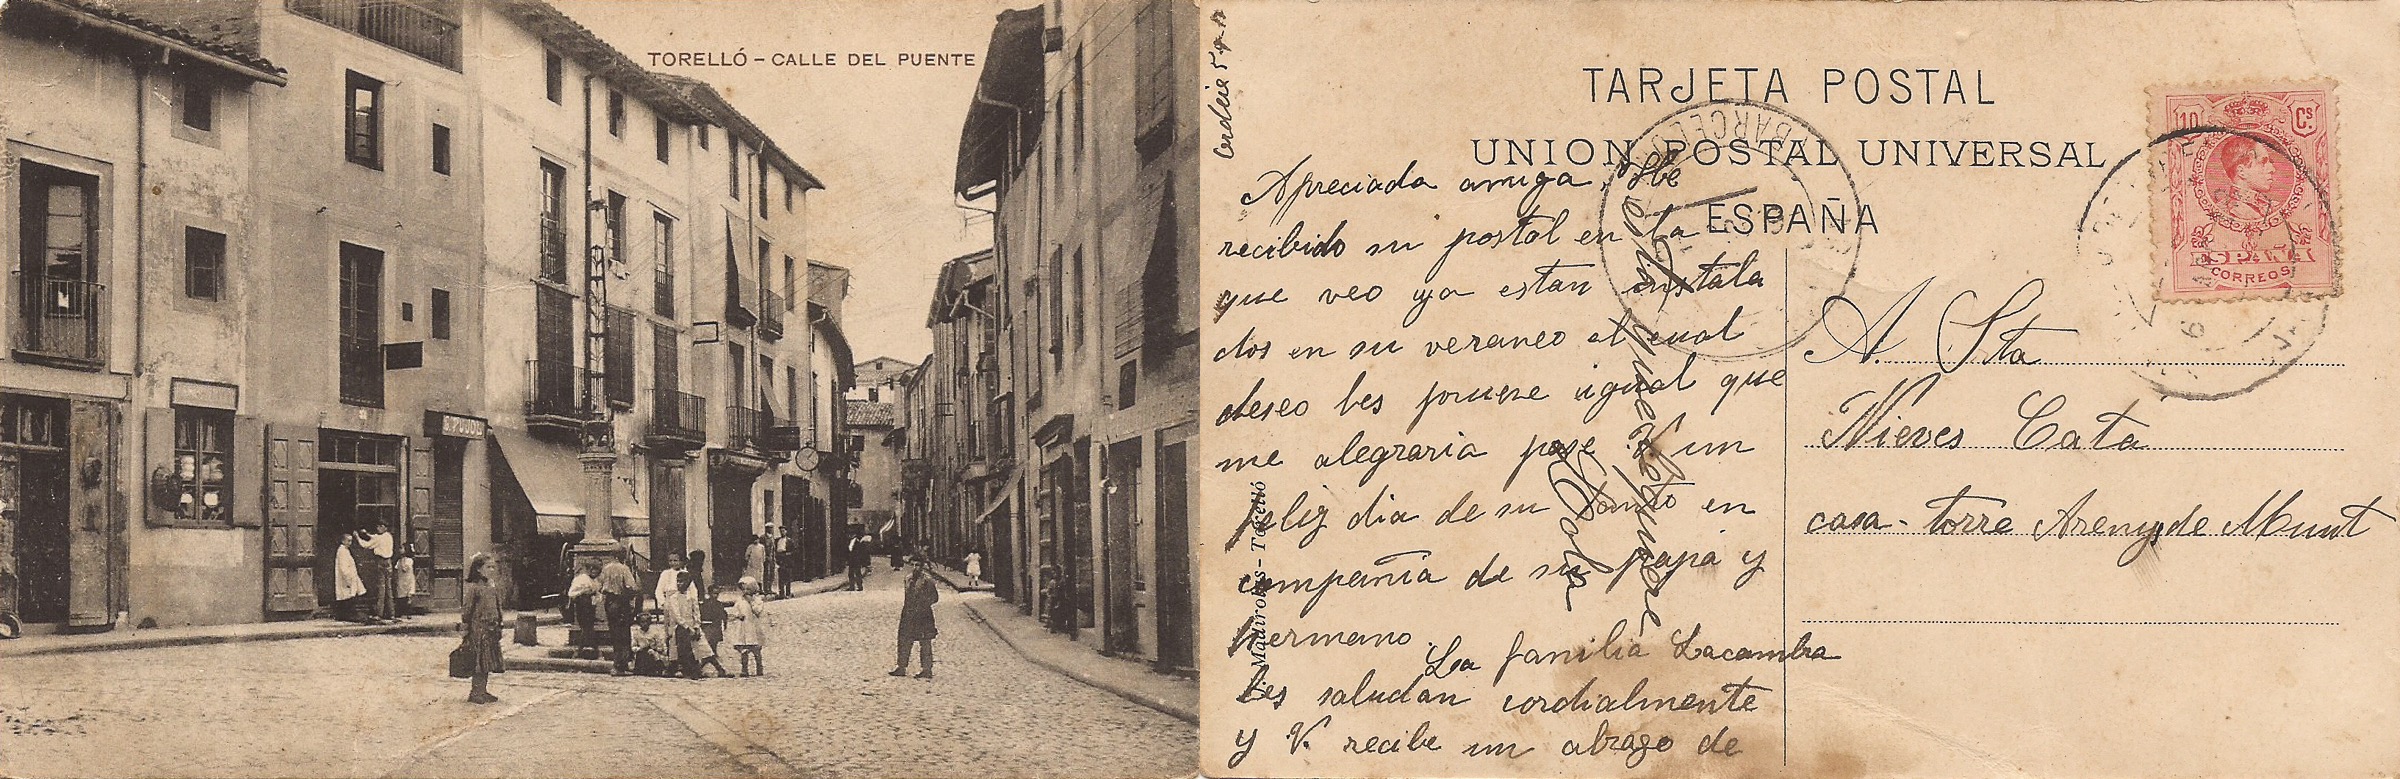 TORELLÓ - CALLE DEL PUENTE
TARJETA POSTAL
UNION POSTAL UNIVERSAL
ESPAÑA
Apreciada amiga, He
recibido su postal en la
que veo ya estan instala
dos en su veraneo el cual
deseo les pruebe igual que
me alegraria pase V. un
feliz dia de su Santo en
compañia de su papá y
hermano.
La familia Lacambra
les saludan cordialmente
y V. recibe un abrazo de
que
Madirolas - Torelló
BARCEL
10 Cs.
ESPAÑA
CORREOS
A. Sta
Nieves Cata
casa-torre Arenys de Munt